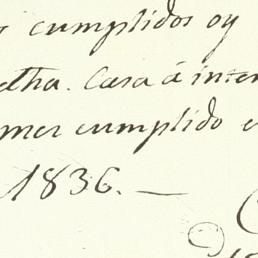 cumplidos oy
dha. Casa á inter
mer cumplido
1836. —